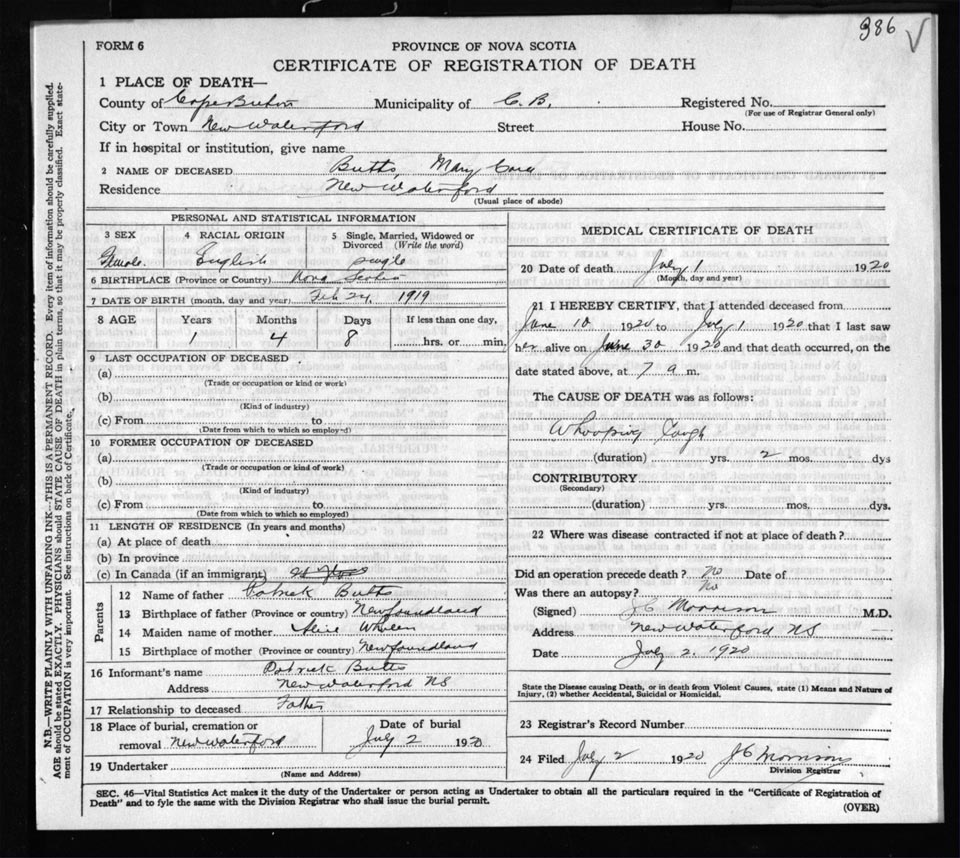 386 √
FORM 6
PROVINCE OF NOVA SCOTIA
CERTIFICATE OF REGISTRATION OF DEATH
1 PLACE OF DEATH—
County of Cape Breton Municipality of C. B. Registered No.
(For use of Registrar General only)
City or Town New Waterford Street House No.
If in hospital or institution, give name
2 NAME OF DECEASED Butts, Mary Cora
Residence New Waterford
(Usual place of abode)
PERSONAL AND STATISTICAL INFORMATION
3 SEX 4 RACIAL ORIGIN 5 Single, Married, Widowed or Divorced (Write the word)
Female. English single
6 BIRTHPLACE (Province or Country) Nova Scotia
7 DATE OF BIRTH (month, day and year) Feb 24, 1919
8 AGE Years Months Days If less than one day,
1 4 8 hrs. or min.
9 LAST OCCUPATION OF DECEASED
(a)
(Trade or occupation or kind or work)
(b)
(Kind of industry)
(c) From to
(Date from which to which so employed)
10 FORMER OCCUPATION OF DECEASED
(a)
(Trade or occupation or kind of work)
(b)
(Kind of industry)
(c) From to
(Date from which to which so employed)
11 LENGTH OF RESIDENCE (In years and months)
(a) At place of death
(b) In province
(c) In Canada (if an immigrant)
Parents
12 Name of father Patrick Butts
13 Birthplace of father (Province or country) Newfoundland
14 Maiden name of mother Alice Whalen
15 Birthplace of mother (Province or country) Newfoundland
16 Informant's name Patrick Butts
Address New Waterford NS
17 Relationship to deceased Father
18 Place of burial, cremation or Date of burial
removal New Waterford July 2 1920
19 Undertaker
(Name and Address)
MEDICAL CERTIFICATE OF DEATH
20 Date of death July 1 1920
(Month, day and year)
21 I HEREBY CERTIFY, that I attended deceased from
June 10 1920 to July 1 1920 that I last saw
her alive on June 30 1920 and that death occurred, on the
date stated above, at 7 a m.
The CAUSE OF DEATH was as follows:
Whooping Cough
(duration) yrs. 2 mos. dys
CONTRIBUTORY
(Secondary)
(duration) yrs. mos. dys.
22 Where was disease contracted if not at place of death?
Did an operation precede death? No Date of
Was there an autopsy? No
(Signed) J C Morrison M.D.
Address New Waterford NS
Date July 2. 1920
State the Disease causing Death, or in death from Violent Causes, state (1) Means and Nature of
Injury, (2) whether Accidental, Suicidal or Homicidal.
23 Registrar's Record Number
24 Filed July 2 1920 J C Morrison
Division Registrar
SEC. 46—Vital Statistics Act makes it the duty of the Undertaker or person acting as Undertaker to obtain all the particulars required in the "Certificate of Registration of
Death" and to fyle the same with the Division Registrar who shall issue the burial permit.
(OVER)
N.B.—WRITE PLAINLY WITH UNFADING INK—THIS IS A PERMANENT RECORD. Every item of information should be carefully supplied.
AGE should be stated EXACTLY. PHYSICIANS should STATE CAUSE OF DEATH in plain terms, so that it may be properly classified. Exact state-
ment of OCCUPATION is very important. See instructions on back of Certificate.